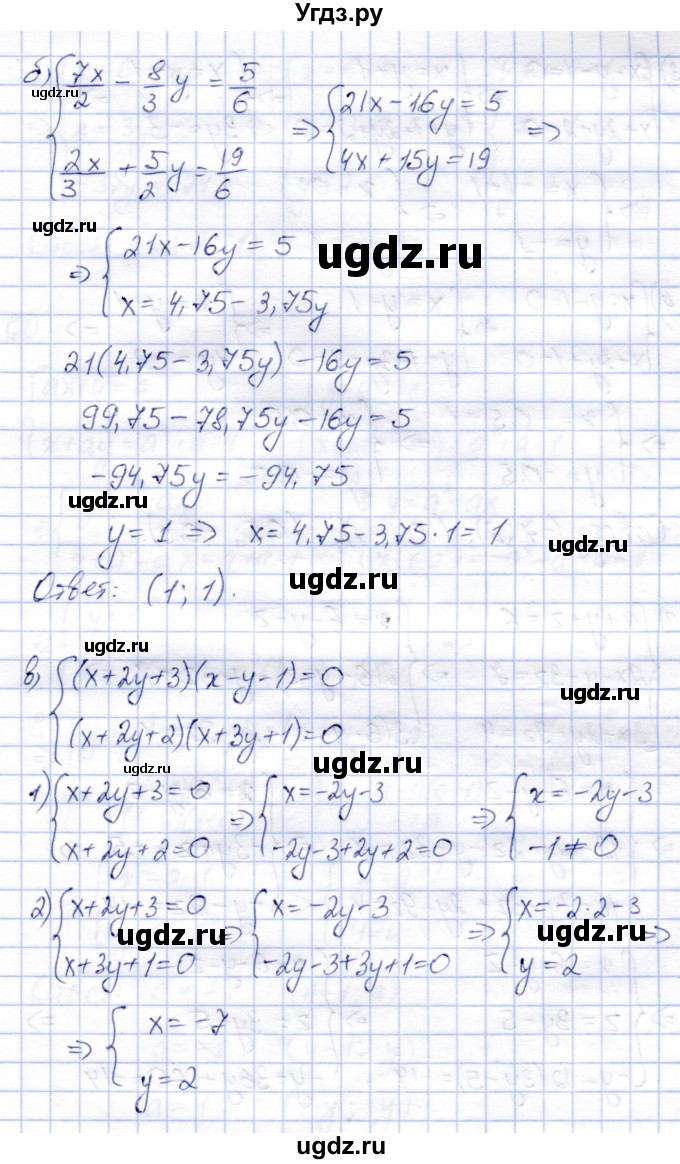 Угдз.ру
б) { 7x/2 − 8/3 y = 5/6
2x/3 + 5/2 y = 19/6
=> { 21x − 16y = 5
4x + 15y = 19 =>
ugdz.ru
ugdz.ru
=> { 21x − 16y = 5
x = 4,75 − 3,75y
ugdz.ru
21(4,75 − 3,75y) − 16y = 5
99,75 − 78,75y − 16y = 5
−94,75y = −94,75
ugdz.ru
y = 1 => x = 4,75 − 3,75·1 = 1
ugdz.ru
Ответ: (1; 1).
ugdz.ru
ugdz.ru
в) { (x+2y+3)(x−y−1)=0
(x+2y+2)(x+3y+1)=0
ugdz.ru
ugdz.ru
ugdz.ru
1) { x+2y+3=0
x+2y+2=0
=> { x=−2y−3
−2y−3+2y+2=0
=> { x=−2y−3
−1≠0
2) { x+2y+3=0
x+3y+1=0
=> { x=−2y−3
−2y−3+3y+1=0
=> { x=−2·2−3
y=2 =>
ugdz.ru
ugdz.ru
=> { x=−7
y=2
ugdz.ru